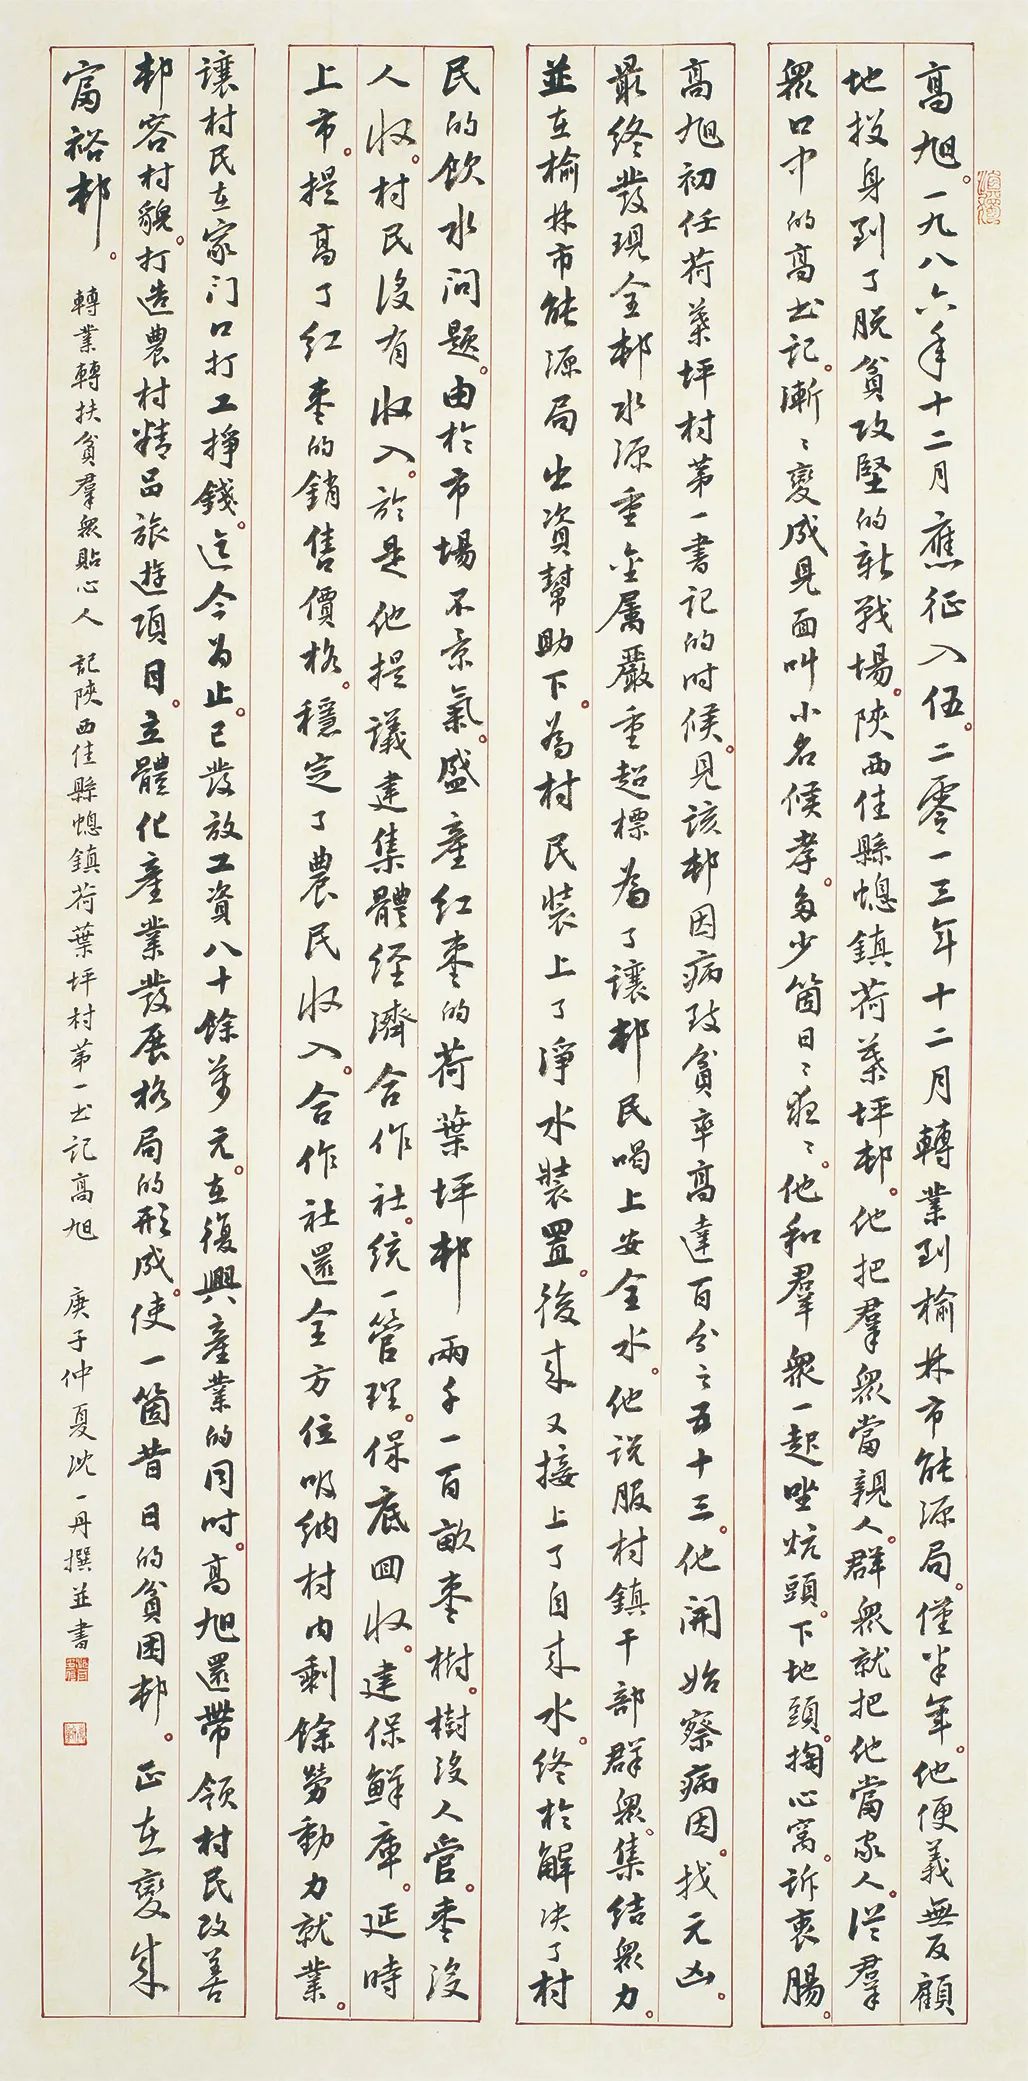 高旭。一九八六年十二月應征入伍。二零一三年十二月轉業到榆林市能源局。僅半年。他便義無反顧
地投身到了脫貧攻堅的新戰場。陝西佳縣螅鎮荷葉坪邨。他把羣衆當親人。群衆就把他當家人。從羣
衆口中的高书記。漸〻變成見面叫小名候孝。多少箇日〻夜〻。他和羣衆一起坐炕頭。下地頭。掏心窩。訴衷腸。
高旭初任荷葉坪村第一書記的时候。見該邨因病致貧率高達百分之五十三。他開始察病因。找元凶。
最終發現全邨水源重金属嚴重超標。為了讓邨民喝上安全水。他说服村鎮干部群衆。集结衆力。
並在榆林市能源局出資幫助下。為村民装上了淨水裝置。後来又接上了自来水。终於解决了村
民的飲水问题。由於市場不景氣。盛產红棗的荷葉坪邨兩千一百畝棗樹。樹没人管。棗没
人收。村民没有收入。於是他提議建集體经濟合作社。统一管理。保底回收。建保鲜庫。延時
上市。提高了红棗的銷售價格。穩定了農民收入。合作社還全方位吸納村内剩餘勞動力就業。
讓村民在家门口打工掙錢。迄今为止。已發放工資八十餘萬元。在復興產業的同时。高旭還帶领村民改善
邨容村貌。打造農村精品旅遊項目。立體化產業發展格局的形成。使一箇昔日的貧困邨。正在變成
富裕邨。
轉業轉扶貧羣衆貼心人 記陝西佳縣螅鎮荷葉坪村第一书記高旭 庚子仲夏沈一丹撰並書